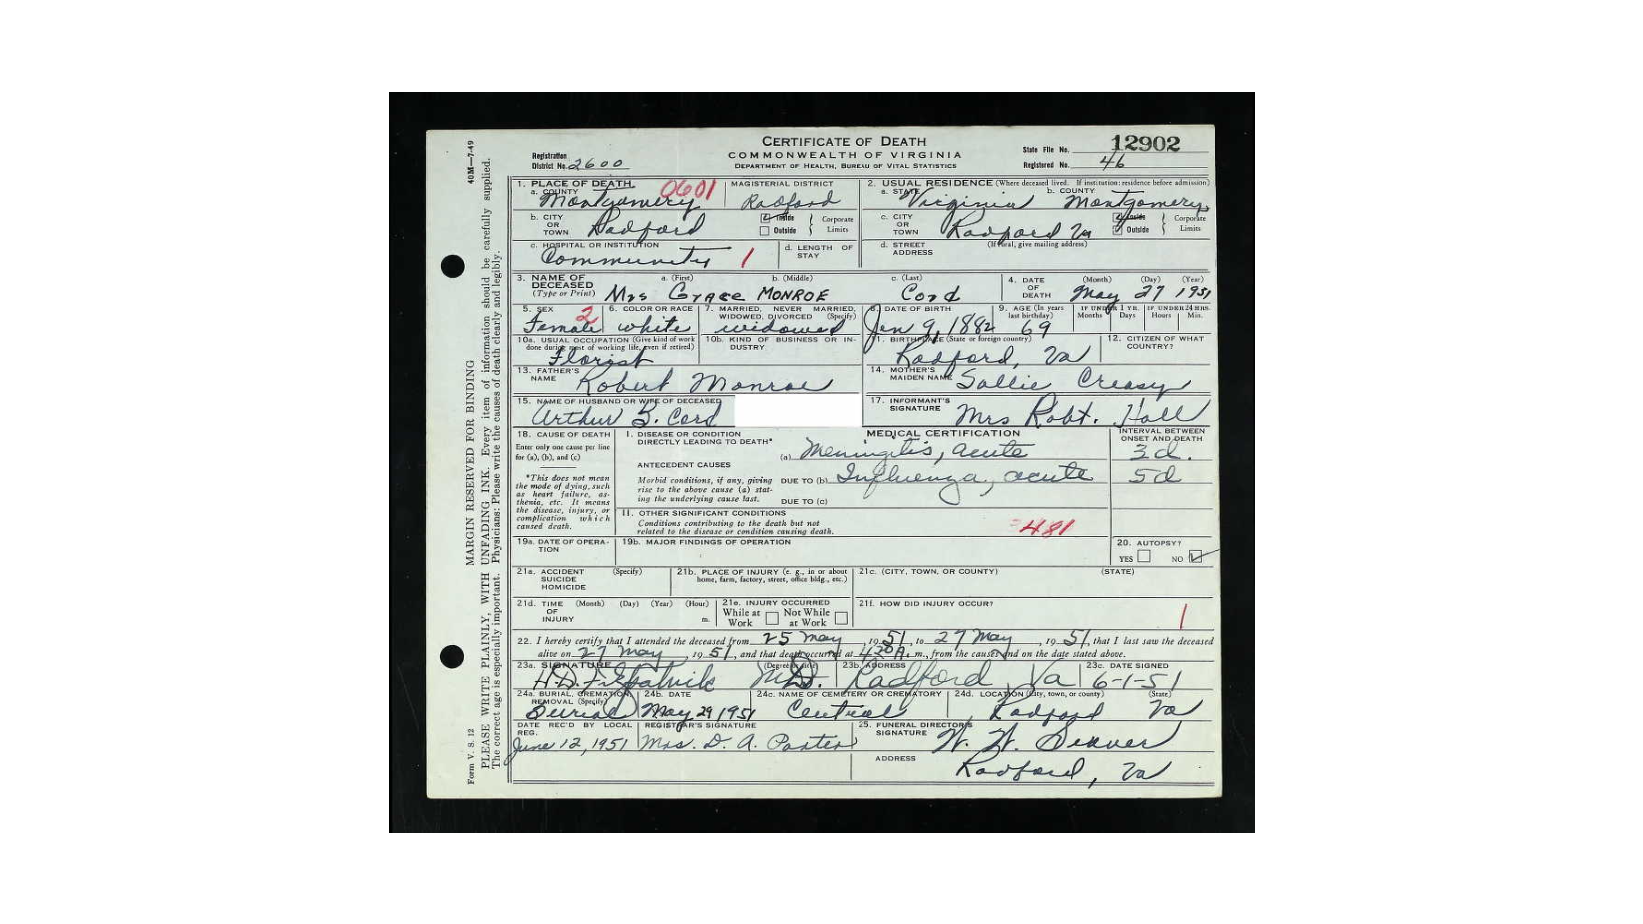 CERTIFICATE OF DEATH
COMMONWEALTH OF VIRGINIA
DEPARTMENT OF HEALTH, BUREAU OF VITAL STATISTICS
Registration District No. 2600
State File No. 12902
Registered No. 46
1. PLACE OF DEATH 0601
a. COUNTY Montgomery
MAGISTERIAL DISTRICT Radford
2. USUAL RESIDENCE (Where deceased lived. If institution: residence before admission)
a. STATE Virginia b. COUNTY Montgomery
b. CITY OR TOWN Radford
Inside Outside Corporate Limits
c. CITY OR TOWN Radford Va
Inside Outside Corporate Limits
c. HOSPITAL OR INSTITUTION Community 1
d. LENGTH OF STAY
d. STREET ADDRESS (If rural, give mailing address)
3. NAME OF DECEASED (Type or Print) a. (First) b. (Middle) c. (Last)
Mrs Grace MONROE Cord
4. DATE OF DEATH (Month) (Day) (Year)
May 27 1951
5. SEX Female 2
6. COLOR OR RACE white
7. MARRIED, NEVER MARRIED, WIDOWED, DIVORCED (Specify) widowed
8. DATE OF BIRTH Jan 9, 1882
9. AGE (In years last birthday) 69
IF UNDER 1 YR. Months Days
IF UNDER 24 HRS. Hours Min.
10a. USUAL OCCUPATION (Give kind of work done during most of working life, even if retired) Florist
10b. KIND OF BUSINESS OR INDUSTRY
11. BIRTHPLACE (State or foreign country) Radford, Va
12. CITIZEN OF WHAT COUNTRY?
13. FATHER'S NAME Robert Monroe
14. MOTHER'S MAIDEN NAME Sallie Creasy
15. NAME OF HUSBAND OR WIFE OF DECEASED Arthur B. Cord
17. INFORMANT'S SIGNATURE Mrs Robt. Hall
18. CAUSE OF DEATH
Enter only one cause per line for (a), (b), and (c)
*This does not mean the mode of dying, such as heart failure, asthenia, etc. It means the disease, injury, or complication which caused death.
MEDICAL CERTIFICATION
INTERVAL BETWEEN ONSET AND DEATH
I. DISEASE OR CONDITION DIRECTLY LEADING TO DEATH* (a) Meningitis, acute 3d.
ANTECEDENT CAUSES
Morbid conditions, if any, giving rise to the above cause (a) stating the underlying cause last.
DUE TO (b) Influenza, acute 5d
DUE TO (c)
II. OTHER SIGNIFICANT CONDITIONS
Conditions contributing to the death but not related to the disease or condition causing death.
481
19a. DATE OF OPERATION
19b. MAJOR FINDINGS OF OPERATION
20. AUTOPSY?
YES NO
21a. ACCIDENT SUICIDE HOMICIDE (Specify)
21b. PLACE OF INJURY (e. g., in or about home, farm, factory, street, office bldg., etc.)
21c. (CITY, TOWN, OR COUNTY) (STATE)
21d. TIME OF INJURY (Month) (Day) (Year) (Hour) m.
21e. INJURY OCCURRED While at Work Not While at Work
21f. HOW DID INJURY OCCUR?
1
22. I hereby certify that I attended the deceased from 25 May, 1951, to 27 May, 1951, that I last saw the deceased
alive on 27 May, 1951, and that death occurred at 4:20 A. m., from the causes and on the date stated above.
23a. SIGNATURE (Degree or title) H.D. Fitzpatrick M.D.
23b. ADDRESS Radford Va
23c. DATE SIGNED 6-1-51
24a. BURIAL, CREMATION REMOVAL (Specify) Burial
24b. DATE May 29 1951
24c. NAME OF CEMETERY OR CREMATORY Central
24d. LOCATION (City, town, or county) (State) Radford Va
DATE REC'D BY LOCAL REG. June 12, 1951
REGISTRAR'S SIGNATURE Mrs. D. A. Porter
25. FUNERAL DIRECTOR'S SIGNATURE Seaver
ADDRESS Radford, Va
Form V. S. 12 MARGIN RESERVED FOR BINDING 40M—7-49
PLEASE WRITE PLAINLY, WITH UNFADING INK. Every item of information should be carefully supplied.
The correct age is especially important. Physicians: Please write the causes of death clearly and legibly.